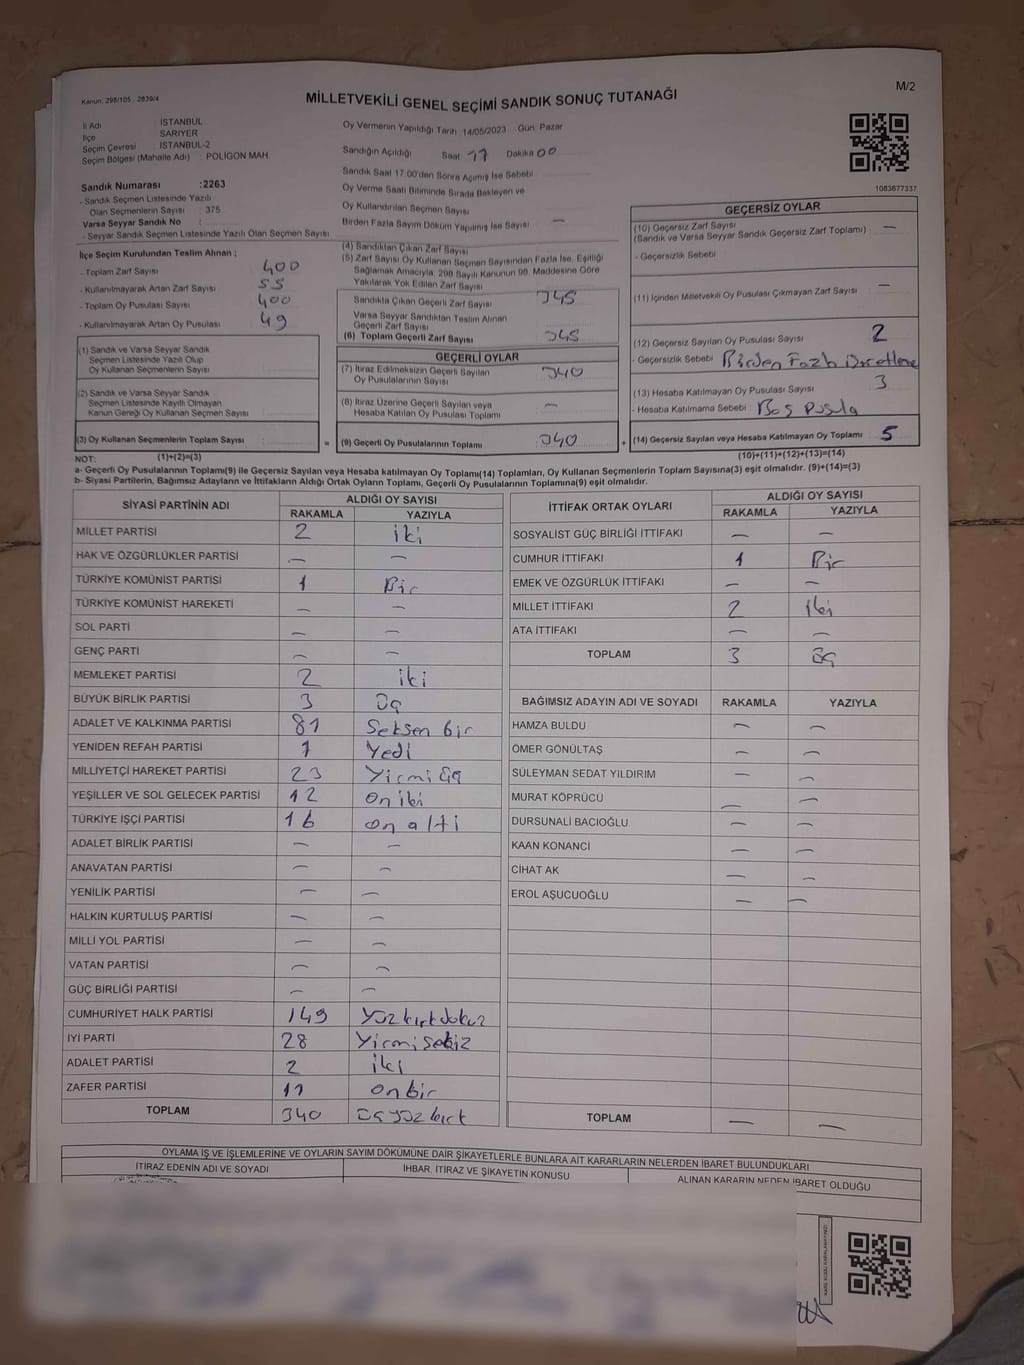 Kanun: 298/105 : 2839/4
MİLLETVEKİLİ GENEL SEÇİMİ SANDIK SONUÇ TUTANAĞI
M/2
İl Adı : İSTANBUL
İlçe : SARIYER
Seçim Çevresi : İSTANBUL-2
Seçim Bölgesi (Mahalle Adı) : POLİGON MAH
Sandık Numarası :2263
- Sandık Seçmen Listesinde Yazılı
Olan Seçmenlerin Sayısı : 375
Varsa Seyyar Sandık No :
- Seyyar Sandık Seçmen Listesinde Yazılı Olan Seçmen Sayısı :
Oy Vermenin Yapıldığı Tarih : 14/05/2023 Gün: Pazar
Sandığın Açıldığı Saat 17 Dakika 00
Sandık Saat 17:00'den Sonra Açımış İse Sebebi
Oy Verme Saati Bitiminde Sırada Bekleyen ve
Oy Kullandırılan Seçmen Sayısı
Birden Fazla Sayım Döküm Yapılmış İse Sayısı : —
1083677337
İlçe Seçim Kurulundan Teslim Alınan :
- Toplam Zarf Sayısı 400
- Kullanılmayarak Artan Zarf Sayısı 55
- Toplam Oy Pusulası Sayısı 400
- Kullanılmayarak Artan Oy Pusulası 49
(1) Sandık ve Varsa Seyyar Sandık
Seçmen Listesinde Yazılı Olup
Oy Kullanan Seçmenlerin Sayısı
(2) Sandık ve Varsa Seyyar Sandık
Seçmen Listesinde Kayıtlı Olmayan
Kanun Gereği Oy Kullanan Seçmen Sayısı
(3) Oy Kullanan Seçmenlerin Toplam Sayısı
(1)+(2)=(3)
(4) Sandıktan Çıkan Zarf Sayısı
(5) Zarf Sayısı Oy Kullanan Seçmen Sayısından Fazla İse, Eşitliği
Sağlamak Amacıyla, 298 Sayılı Kanunun 98. Maddesine Göre
Yakılarak Yok Edilen Zarf Sayısı
Sandıkta Çıkan Geçerli Zarf Sayısı 345
Varsa Seyyar Sandıktan Teslim Alınan
Geçerli Zarf Sayısı
(6) Toplam Geçerli Zarf Sayısı 345
GEÇERLİ OYLAR
(7) İtiraz Edilmeksizin Geçerli Sayılan
Oy Pusulalarının Sayısı 340
(8) İtiraz Üzerine Geçerli Sayılan veya
Hesaba Katılan Oy Pusulası Toplamı —
= (9) Geçerli Oy Pusulalarının Toplamı 340 +
GEÇERSİZ OYLAR
(10) Geçersiz Zarf Sayısı
(Sandık ve Varsa Seyyar Sandık Geçersiz Zarf Toplamı) : —
- Geçersizlik Sebebi
(11) İçinden Milletvekili Oy Pusulası Çıkmayan Zarf Sayısı : —
(12) Geçersiz Sayılan Oy Pusulası Sayısı : 2
- Geçersizlik Sebebi : Birden Fazla
(13) Hesaba Katılmayan Oy Pusulası Sayısı : 3
- Hesaba Katılmama Sebebi : Boş Pusula
(14) Geçersiz Sayılan veya Hesaba Katılmayan Oy Toplamı : 5
(10)+(11)+(12)+(13)=(14)
NOT:
a- Geçerli Oy Pusulalarının Toplamı(9) ile Geçersiz Sayılan veya Hesaba katılmayan Oy Toplamı(14) Toplamları, Oy Kullanan Seçmenlerin Toplam Sayısına(3) eşit olmalıdır. (9)+(14)=(3)
b- Siyasi Partilerin, Bağımsız Adayların ve İttifakların Aldığı Ortak Oyların Toplamı, Geçerli Oy Pusulalarının Toplamına(9) eşit olmalıdır.
SİYASİ PARTİNİN ADI ALDIĞI OY SAYISI
RAKAMLA YAZIYLA
MİLLET PARTİSİ 2 iki
HAK VE ÖZGÜRLÜKLER PARTİSİ — —
TÜRKİYE KOMÜNİST PARTİSİ 1 Bir
TÜRKİYE KOMÜNİST HAREKETİ — —
SOL PARTİ — —
GENÇ PARTİ — —
MEMLEKET PARTİSİ 2 iki
BÜYÜK BİRLİK PARTİSİ 3 Üç
ADALET VE KALKINMA PARTİSİ 81 Seksen bir
YENİDEN REFAH PARTİSİ 7 Yedi
MİLLİYETÇİ HAREKET PARTİSİ 23 Yirmi üç
YEŞİLLER VE SOL GELECEK PARTİSİ 12 on iki
TÜRKİYE İŞÇİ PARTİSİ 16 on altı
ADALET BİRLİK PARTİSİ — —
ANAVATAN PARTİSİ — —
YENİLİK PARTİSİ — —
HALKIN KURTULUŞ PARTİSİ — —
MİLLİ YOL PARTİSİ — —
VATAN PARTİSİ — —
GÜÇ BİRLİĞİ PARTİSİ — —
CUMHURİYET HALK PARTİSİ 149 Yüz kırk dokuz
İYİ PARTİ 28 Yirmi sekiz
ADALET PARTİSİ 2 iki
ZAFER PARTİSİ 11 on bir
TOPLAM 340 üç yüz kırk
İTTİFAK ORTAK OYLARI ALDIĞI OY SAYISI
RAKAMLA YAZIYLA
SOSYALİST GÜÇ BİRLİĞİ İTTİFAKI — —
CUMHUR İTTİFAKI 1 Bir
EMEK VE ÖZGÜRLÜK İTTİFAKI — —
MİLLET İTTİFAKI 2 iki
ATA İTTİFAKI — —
TOPLAM 3 üç
BAĞIMSIZ ADAYIN ADI VE SOYADI RAKAMLA YAZIYLA
HAMZA BULDU — —
ÖMER GÖNÜLTAŞ — —
SÜLEYMAN SEDAT YILDIRIM — —
MURAT KÖPRÜCÜ — —
DURSUNALİ BACIOĞLU — —
KAAN KONANCI — —
CİHAT AK — —
EROL AŞUCUOĞLU — —
TOPLAM — —
OYLAMA İŞ VE İŞLEMLERİNE VE OYLARIN SAYIM DÖKÜMÜNE DAİR ŞİKAYETLERLE BUNLARA AİT KARARLARIN NELERDEN İBARET BULUNDUKLARI
İTİRAZ EDENİN ADI VE SOYADI İHBAR, İTİRAZ VE ŞİKAYETİN KONUSU ALINAN KARARIN NEDEN İBARET OLDUĞU